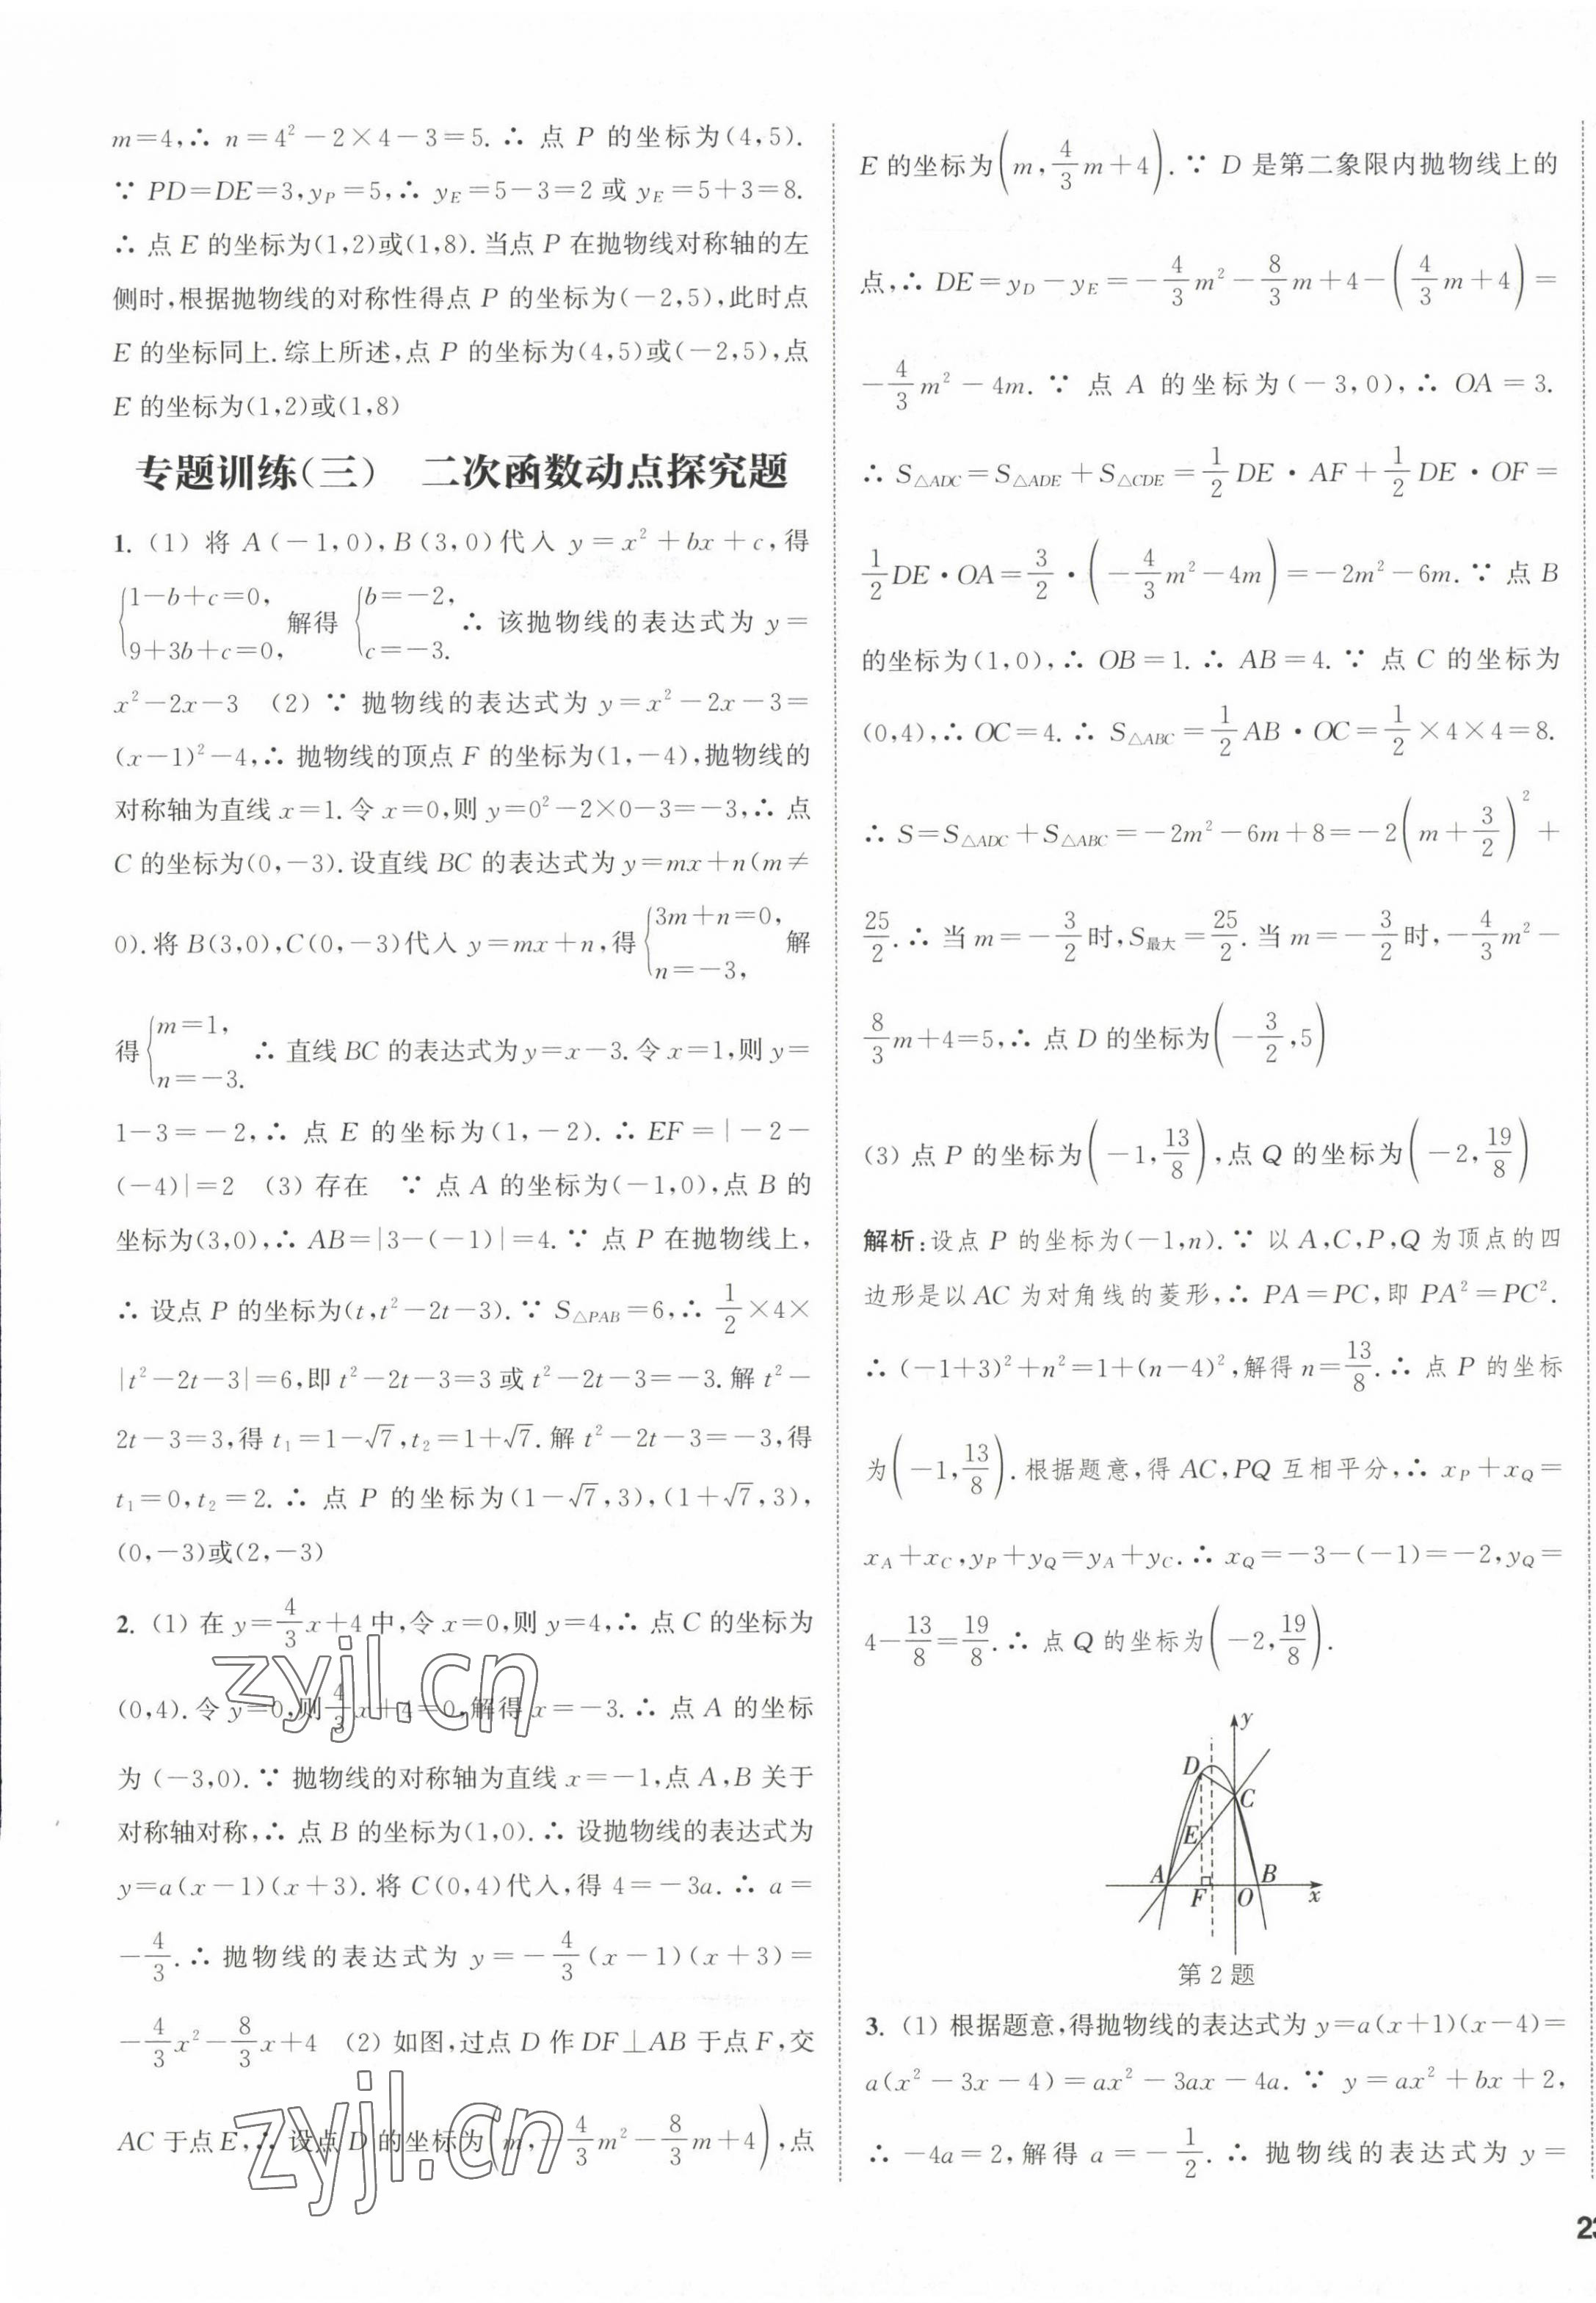 m=4,∴ n=4²-2×4-3=5.∴ 点 P 的坐标为(4,5).
∵ PD=DE=3,y_P=5,∴ y_E=5-3=2 或 y_E=5+3=8.
∴ 点 E 的坐标为(1,2)或(1,8).当点 P 在抛物线对称轴的左
侧时,根据抛物线的对称性得点 P 的坐标为(-2,5),此时点
E 的坐标同上.综上所述,点 P 的坐标为(4,5)或(-2,5),点
E 的坐标为(1,2)或(1,8)
专题训练(三) 二次函数动点探究题
1. (1) 将 A(-1,0),B(3,0)代入 y=x²+bx+c,得
{1-b+c=0, 9+3b+c=0, 解得 {b=-2, c=-3. ∴ 该抛物线的表达式为 y=
x²-2x-3 (2) ∵ 抛物线的表达式为 y=x²-2x-3=
(x-1)²-4,∴ 抛物线的顶点 F 的坐标为(1,-4),抛物线的
对称轴为直线 x=1.令 x=0,则 y=0²-2×0-3=-3,∴ 点
C 的坐标为(0,-3).设直线 BC 的表达式为 y=mx+n(m≠
0).将 B(3,0),C(0,-3)代入 y=mx+n,得{3m+n=0, n=-3, 解
得{m=1, n=-3. ∴ 直线 BC 的表达式为 y=x-3.令 x=1,则 y=
1-3=-2,∴ 点 E 的坐标为(1,-2).∴ EF=|-2-
(-4)|=2 (3) 存在 ∵ 点 A 的坐标为(-1,0),点 B 的
坐标为(3,0),∴ AB=|3-(-1)|=4.∵ 点 P 在抛物线上,
∴ 设点 P 的坐标为(t,t²-2t-3).∵ S△PAB=6,∴ 1/2×4×
|t²-2t-3|=6,即 t²-2t-3=3 或 t²-2t-3=-3.解 t²-
2t-3=3,得 t₁=1-√7,t₂=1+√7.解 t²-2t-3=-3,得
t₁=0,t₂=2.∴ 点 P 的坐标为(1-√7,3),(1+√7,3),
(0,-3)或(2,-3)
2. (1) 在 y=4/3x+4 中,令 x=0,则 y=4,∴ 点 C 的坐标为
(0,4).令 y=0,则 4/3x+4=0,解得 x=-3.∴ 点 A 的坐标
为 (-3,0).∵ 抛物线的对称轴为直线 x=-1,点 A,B 关于
对称轴对称,∴ 点 B 的坐标为(1,0).∴ 设抛物线的表达式为
y=a(x-1)(x+3).将 C(0,4)代入,得 4=-3a.∴ a=
-4/3.∴ 抛物线的表达式为 y=-4/3(x-1)(x+3)=
-4/3x²-8/3x+4 (2) 如图,过点 D 作 DF⊥AB 于点 F,交
AC 于点 E,∴ 设点 D 的坐标为(m,-4/3m²-8/3m+4),点
zyjl.cn
zyjl.cn
E 的坐标为(m,4/3m+4).∵ D 是第二象限内抛物线上的
点,∴ DE=y_D-y_E=-4/3m²-8/3m+4-(4/3m+4)=
-4/3m²-4m.∵ 点 A 的坐标为(-3,0),∴ OA=3.
∴ S△ADC=S△ADE+S△CDE=1/2DE·AF+1/2DE·OF=
1/2DE·OA=3/2·(-4/3m²-4m)=-2m²-6m.∵ 点 B
的坐标为(1,0),∴ OB=1.∴ AB=4.∵ 点 C 的坐标为
(0,4),∴ OC=4.∴ S△ABC=1/2AB·OC=1/2×4×4=8.
∴ S=S△ADC+S△ABC=-2m²-6m+8=-2(m+3/2)²+
25/2.∴ 当 m=-3/2时,S最大=25/2.当 m=-3/2时,-4/3m²-
8/3m+4=5,∴ 点 D 的坐标为(-3/2,5)
(3) 点 P 的坐标为(-1,13/8),点 Q 的坐标为(-2,19/8)
解析:设点 P 的坐标为(-1,n).∵ 以 A,C,P,Q 为顶点的四
边形是以 AC 为对角线的菱形,∴ PA=PC,即 PA²=PC².
∴ (-1+3)²+n²=1+(n-4)²,解得 n=13/8.∴ 点 P 的坐标
为(-1,13/8).根据题意,得 AC,PQ 互相平分,∴ x_P+x_Q=
x_A+x_C,y_P+y_Q=y_A+y_C.∴ x_Q=-3-(-1)=-2,y_Q=
4-13/8=19/8.∴ 点 Q 的坐标为(-2,19/8).
y
D
C
E
A
B
F
O
x
第 2 题
3. (1) 根据题意,得抛物线的表达式为 y=a(x+1)(x-4)=
a(x²-3x-4)=ax²-3ax-4a.∵ y=ax²+bx+2,
∴ -4a=2,解得 a=-1/2.∴ 抛物线的表达式为 y=
23